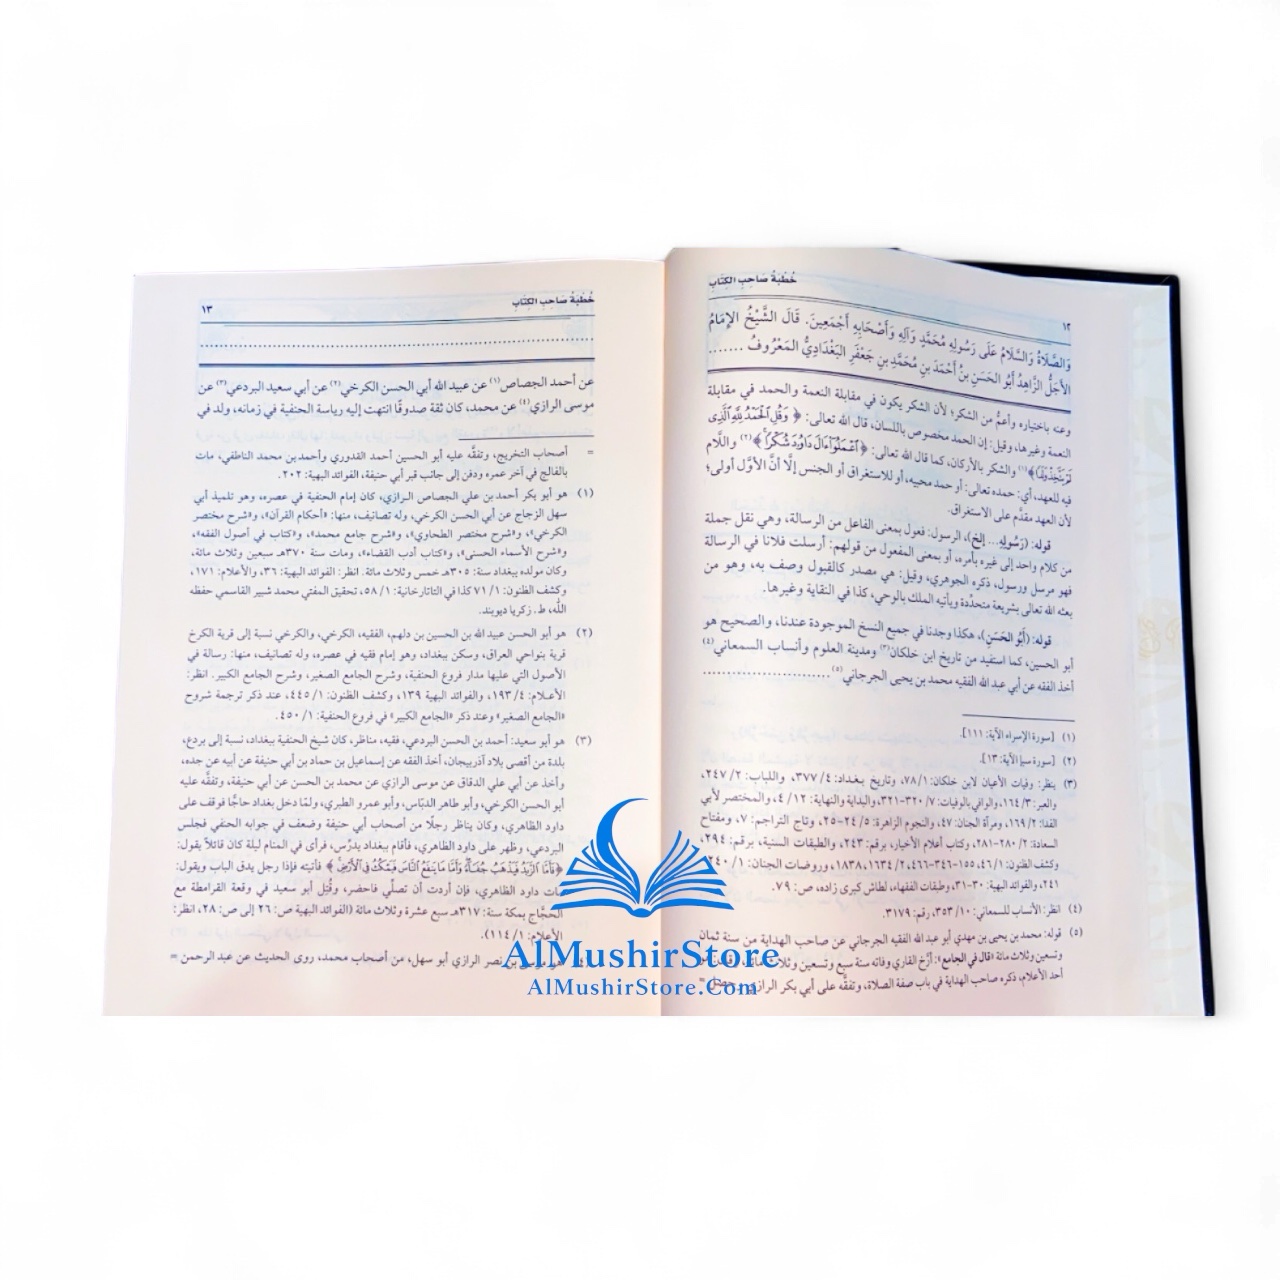 خُطْبَةُ صَاحِبِ الكِتَابِ
١٢
وَالصَّلَاةُ وَالسَّلَامُ عَلَى رَسُولِهِ مُحَمَّدٍ وَآلِهِ وَأَصْحَابِهِ أَجْمَعِينَ. قَالَ الشَّيْخُ الإِمَامُ
الأَجَلُّ الزَّاهِدُ أَبُو الحَسَنِ بنُ أَحْمَدَ بنِ مُحَمَّدِ بنِ جَعْفَرٍ البَغْدَادِيُّ المَعْرُوفُ .......
وعنه باختياره وأعمُّ من الشكر؛ لأن الشكر يكون في مقابلة النعمة والحمد في مقابلة
النعمة وغيرها، وقيل: إن الحمد مخصوص باللسان، قال الله تعالى: ﴿ وَقُلِ ٱلْحَمْدُ لِلَّهِ ٱلَّذِى
لَمْ يَتَّخِذْ وَلَدًا﴾(١) والشكر بالأركان، كما قال الله تعالى: ﴿ٱعْمَلُوٓا۟ ءَالَ دَاوُۥدَ شُكْرًا﴾(٢) واللام
فيه للعهد، أي: حمده تعالى: أو حمد محبيه، أو للاستغراق أو الجنس إلَّا أنَّ الأوّل أولى؛
لأن العهد مقدَّم على الاستغراق.
قوله: (رَسُولِهِ... إلخ)، الرسول: فعول بمعنى الفاعل من الرسالة، وهي نقل جملة
من كلام واحد إلى غيره بأمره، أو بمعنى المفعول من قولهم: أرسلت فلانا في الرسالة
فهو مرسل ورسول، ذكره الجوهري، وقيل: هي مصدر كالقبول وصف به، وهو من
بعثه الله تعالى بشريعة متجدّدة ويأتيه الملك بالوحي، كذا في النقاية وغيرها.
قوله: (أَبُو الحَسَنِ)، هكذا وجدنا في جميع النسخ الموجودة عندنا، والصحيح هو
أبو الحسين، كما استفيد من تاريخ ابن خلكان(٣) ومدينة العلوم وأنساب السمعاني(٤)
أخذ الفقه عن أبي عبد الله الفقيه محمد بن يحيى الجرجاني(٥) ........................
(١) [سورة الإسراء الآية: ١١١].
(٢) [سورة سبإ الآية: ١٣].
(٣) ينظر: وفيات الأعيان لابن خلكان: ١/ ٧٨، وتاريخ بغداد: ٤/ ٣٧٧، واللباب: ٢/ ٢٤٧،
والعبر: ٣/ ١٦٤، والوافي بالوفيات: ٧/ ٣٢٠-٣٢١، والبداية والنهاية: ١٢/ ٤، والمختصر لأبي
الفدا: ٢/ ١٦٩، ومرآة الجنان: ٤٧، والنجوم الزاهرة: ٥/ ٢٤-٢٥، وتاج التراجم: ٧، ومفتاح
السعادة: ٢/ ٢٨٠-٢٨١، وكتاب أعلام الأخبار، برقم: ٢٤٣، والطبقات السنية، برقم: ٢٩٤،
وكشف الظنون: ١/ ٤٦، ١٥٥-٣٤٦-٤٦٦، ٢/ ١٦٣٤، ١٨٣٨، وروضات الجنان: ١/ ٢٤٠
٢٤١، والفوائد البهية: ٣٠-٣١، وطبقات الفقهاء، لطاش كبرى زاده، ص: ٧٩.
(٤) انظر: الأنساب للسمعاني: ١٠/ ٣٥٣، رقم: ٣١٧٩.
(٥) قوله: محمد بن يحيى بن مهدي أبو عبد الله الفقيه الجرجاني عن صاحب الهداية من سنة ثمان
وتسعين وثلاث مائة (قال في الجامع): أرَّخ القاري وفاته سنة سبع وتسعين وثلاث مائة،
أحد الأعلام، ذكره صاحب الهداية في باب صفة الصلاة، وتفقَّه على أبي بكر الرازي، حصل =
خُطْبَةُ صَاحِبِ الكِتَابِ
١٣
عن أحمد الجصاص(١) عن عبيد الله أبي الحسن الكرخي(٢) عن أبي سعيد البردعي(٣) عن
موسى الرازي(٤) عن محمد، كان ثقة صدوقًا انتهت إليه رياسة الحنفية في زمانه، ولد في
= أصحاب التخريج، وتفقَّه عليه أبو الحسين أحمد القدوري وأحمد بن محمد الناطفي، مات
بالفالج في آخر عمره ودفن إلى جانب قبر أبي حنيفة، الفوائد البهية: ٢٠٢.
(١) هو أبو بكر أحمد بن علي الجصاص الرازي، كان إمام الحنفية في عصره، وهو تلميذ أبي
سهل الزجاج عن أبي الحسن الكرخي، وله تصانيف، منها: «أحكام القرآن»، و«شرح مختصر
الكرخي»، و«شرح مختصر الطحاوي»، و«شرح جامع محمد»، و«كتاب في أصول الفقه»،
و«شرح الأسماء الحسنى»، و«كتاب أدب القضاء»، ومات سنة ٣٧٠هـ سبعين وثلاث مائة،
وكان مولده ببغداد سنة: ٣٠٥هـ خمس وثلاث مائة. انظر: الفوائد البهية: ٣٦، والأعلام: ١٧١،
وكشف الظنون: ١/ ٧١ كذا في التاتارخانية: ١/ ٥٨، تحقيق المفتي محمد شبير القاسمي حفظه
الله، ط. زكريا ديوبند.
(٢) هو أبو الحسن عبيد الله بن الحسين بن دلهم، الفقيه، الكرخي، والكرخي نسبة إلى قرية الكرخ
قرية بنواحي العراق، وسكن ببغداد، وهو إمام فقيه في عصره، وله تصانيف، منها: رسالة في
الأصول التي عليها مدار فروع الحنفية، وشرح الجامع الصغير، وشرح الجامع الكبير. انظر:
الأعلام: ٤/ ١٩٣، والفوائد البهية ١٣٩، وكشف الظنون: ١/ ٤٤٥، عند ذكر ترجمة شروح
«الجامع الصغير» وعند ذكر «الجامع الكبير» في فروع الحنفية: ١/ ٤٥٠.
(٣) هو أبو سعيد: أحمد بن الحسن البردعي، فقيه، مناظر، كان شيخ الحنفية ببغداد، نسبة إلى بردع،
بلدة من أقصى بلاد آذربيجان، أخذ الفقه عن إسماعيل بن حماد بن أبي حنيفة عن أبيه عن جده،
وأخذ عن أبي علي الدقاق عن موسى الرازي عن محمد بن الحسن عن أبي حنيفة، وتفقَّه عليه
أبو الحسن الكرخي، وأبو طاهر الدبّاس، وأبو عمرو الطبري، ولمّا دخل بغداد حاجًّا فوقف على
داود الظاهري، وكان يناظر رجلًا من أصحاب أبي حنيفة وضعف في جوابه الحنفي فجلس
البردعي، وظهر على داود الظاهري، فأقام ببغداد يدرِّس، فرأى في المنام ليلة كان قائلاً يقول:
﴿فَأَمَّا ٱلزَّبَدُ فَيَذْهَبُ جُفَآءً وَأَمَّا مَا يَنفَعُ ٱلنَّاسَ فَيَمْكُثُ فِى ٱلْأَرْضِ ﴾ فأنبته فإذا رجل يدق الباب ويقول:
مات داود الظاهري، فإن أردت أن تصلّي فاحضر، وقُتل أبو سعيد في وقعة القرامطة مع
الحجَّاج بمكة سنة: ٣١٧هـ سبع عشرة وثلاث مائة (الفوائد البهية ص: ٢٦ إلى ص: ٢٨، انظر:
الأعلام: ١/ ١١٤).
بن نصر الرازي أبو سهل، من أصحاب محمد، روى الحديث عن عبد الرحمن =
AlMushirStore
AlMushirStore.Com